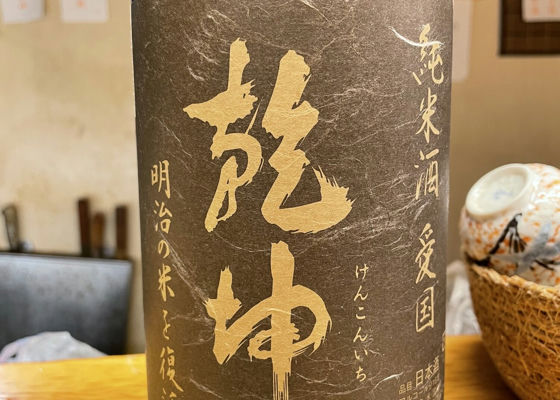 純米酒 愛国
乾坤
けんこんいち
明治の米を復
品目 日本酒